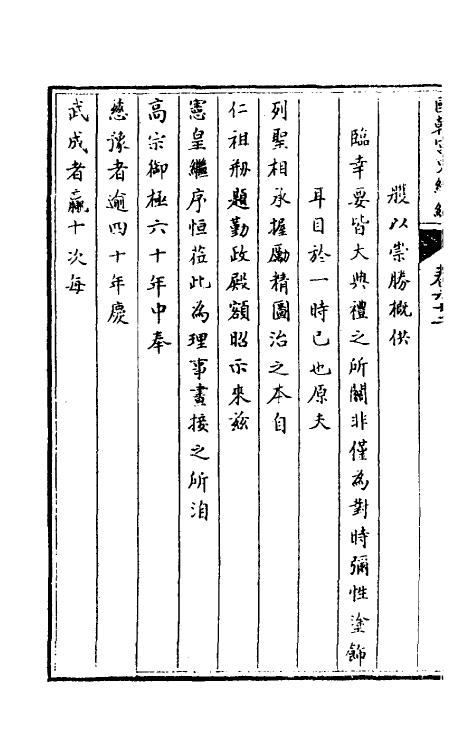 國朝宮史續編 卷六十二
殿以崇勝概供
臨幸要皆大典禮之所關非僅為對時彌性塗飾
耳目於一時已也原夫
列聖相承握勵精圖治之本自
仁祖剏題勤政殿額昭示來茲
憲皇繼序恒莅此為理事晝接之所洎
高宗御極六十年中奉
慈豫者逾四十年慶
武成者贏十次每